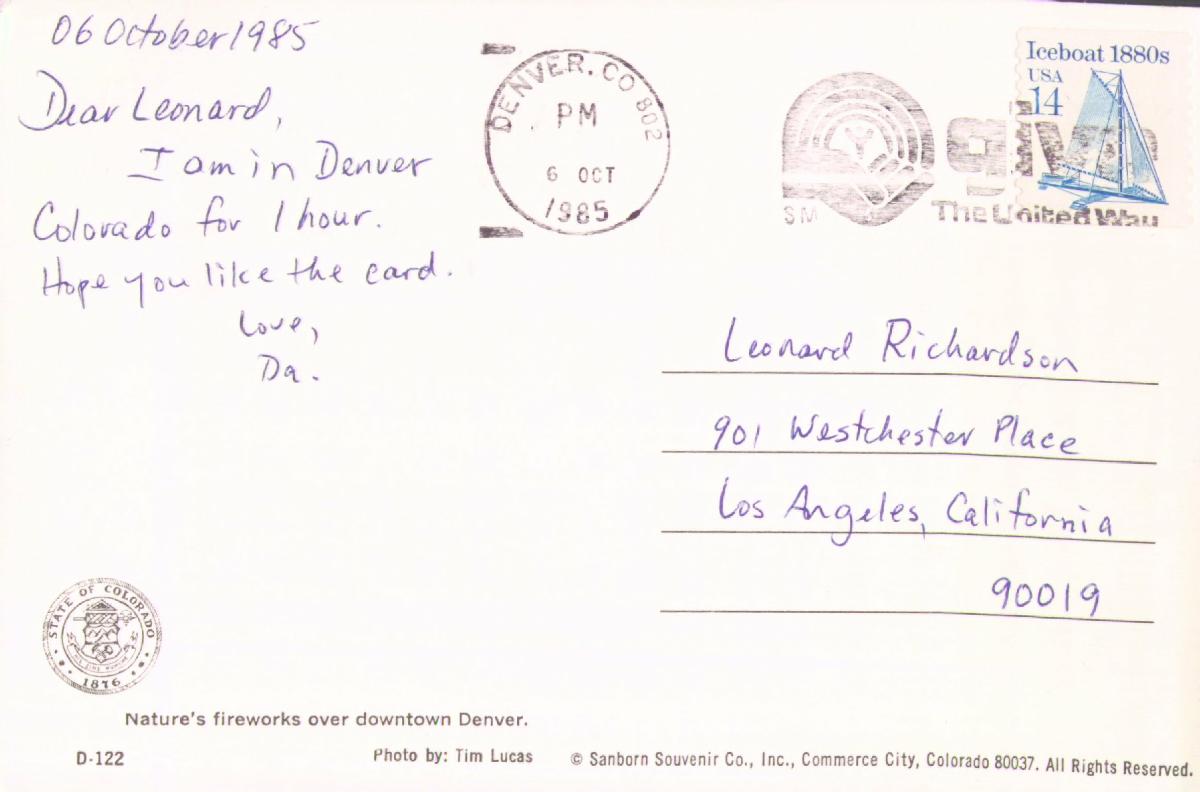 06 October 1985
Dear Leonard,
I am in Denver
Colorado for 1 hour.
Hope you like the card.
Love,
Da.
DENVER, CO 802
PM
6 OCT
1985
SM
give
The United Way
Iceboat 1880s
USA
14
Leonard Richardson
901 Westchester Place
Los Angeles, California
90019
STATE OF COLORADO
1876
Nature's fireworks over downtown Denver.
D-122
Photo by: Tim Lucas
© Sanborn Souvenir Co., Inc., Commerce City, Colorado 80037. All Rights Reserved.